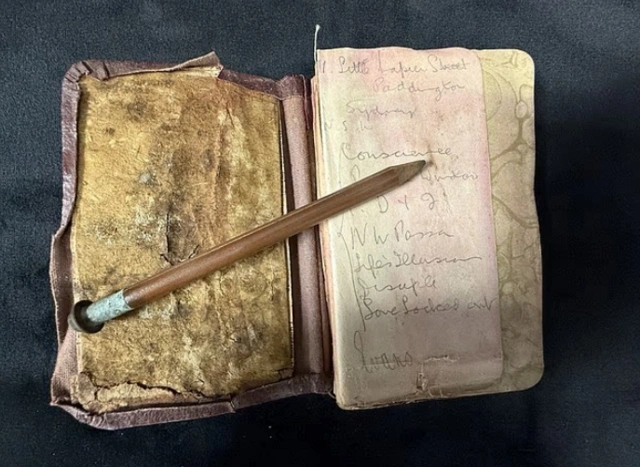 1. Little Napier Street
Paddington
Sydney
N. S. W
Conscience
D & J
N W Passa
Life's Illusion
Disciple
Love Locked out